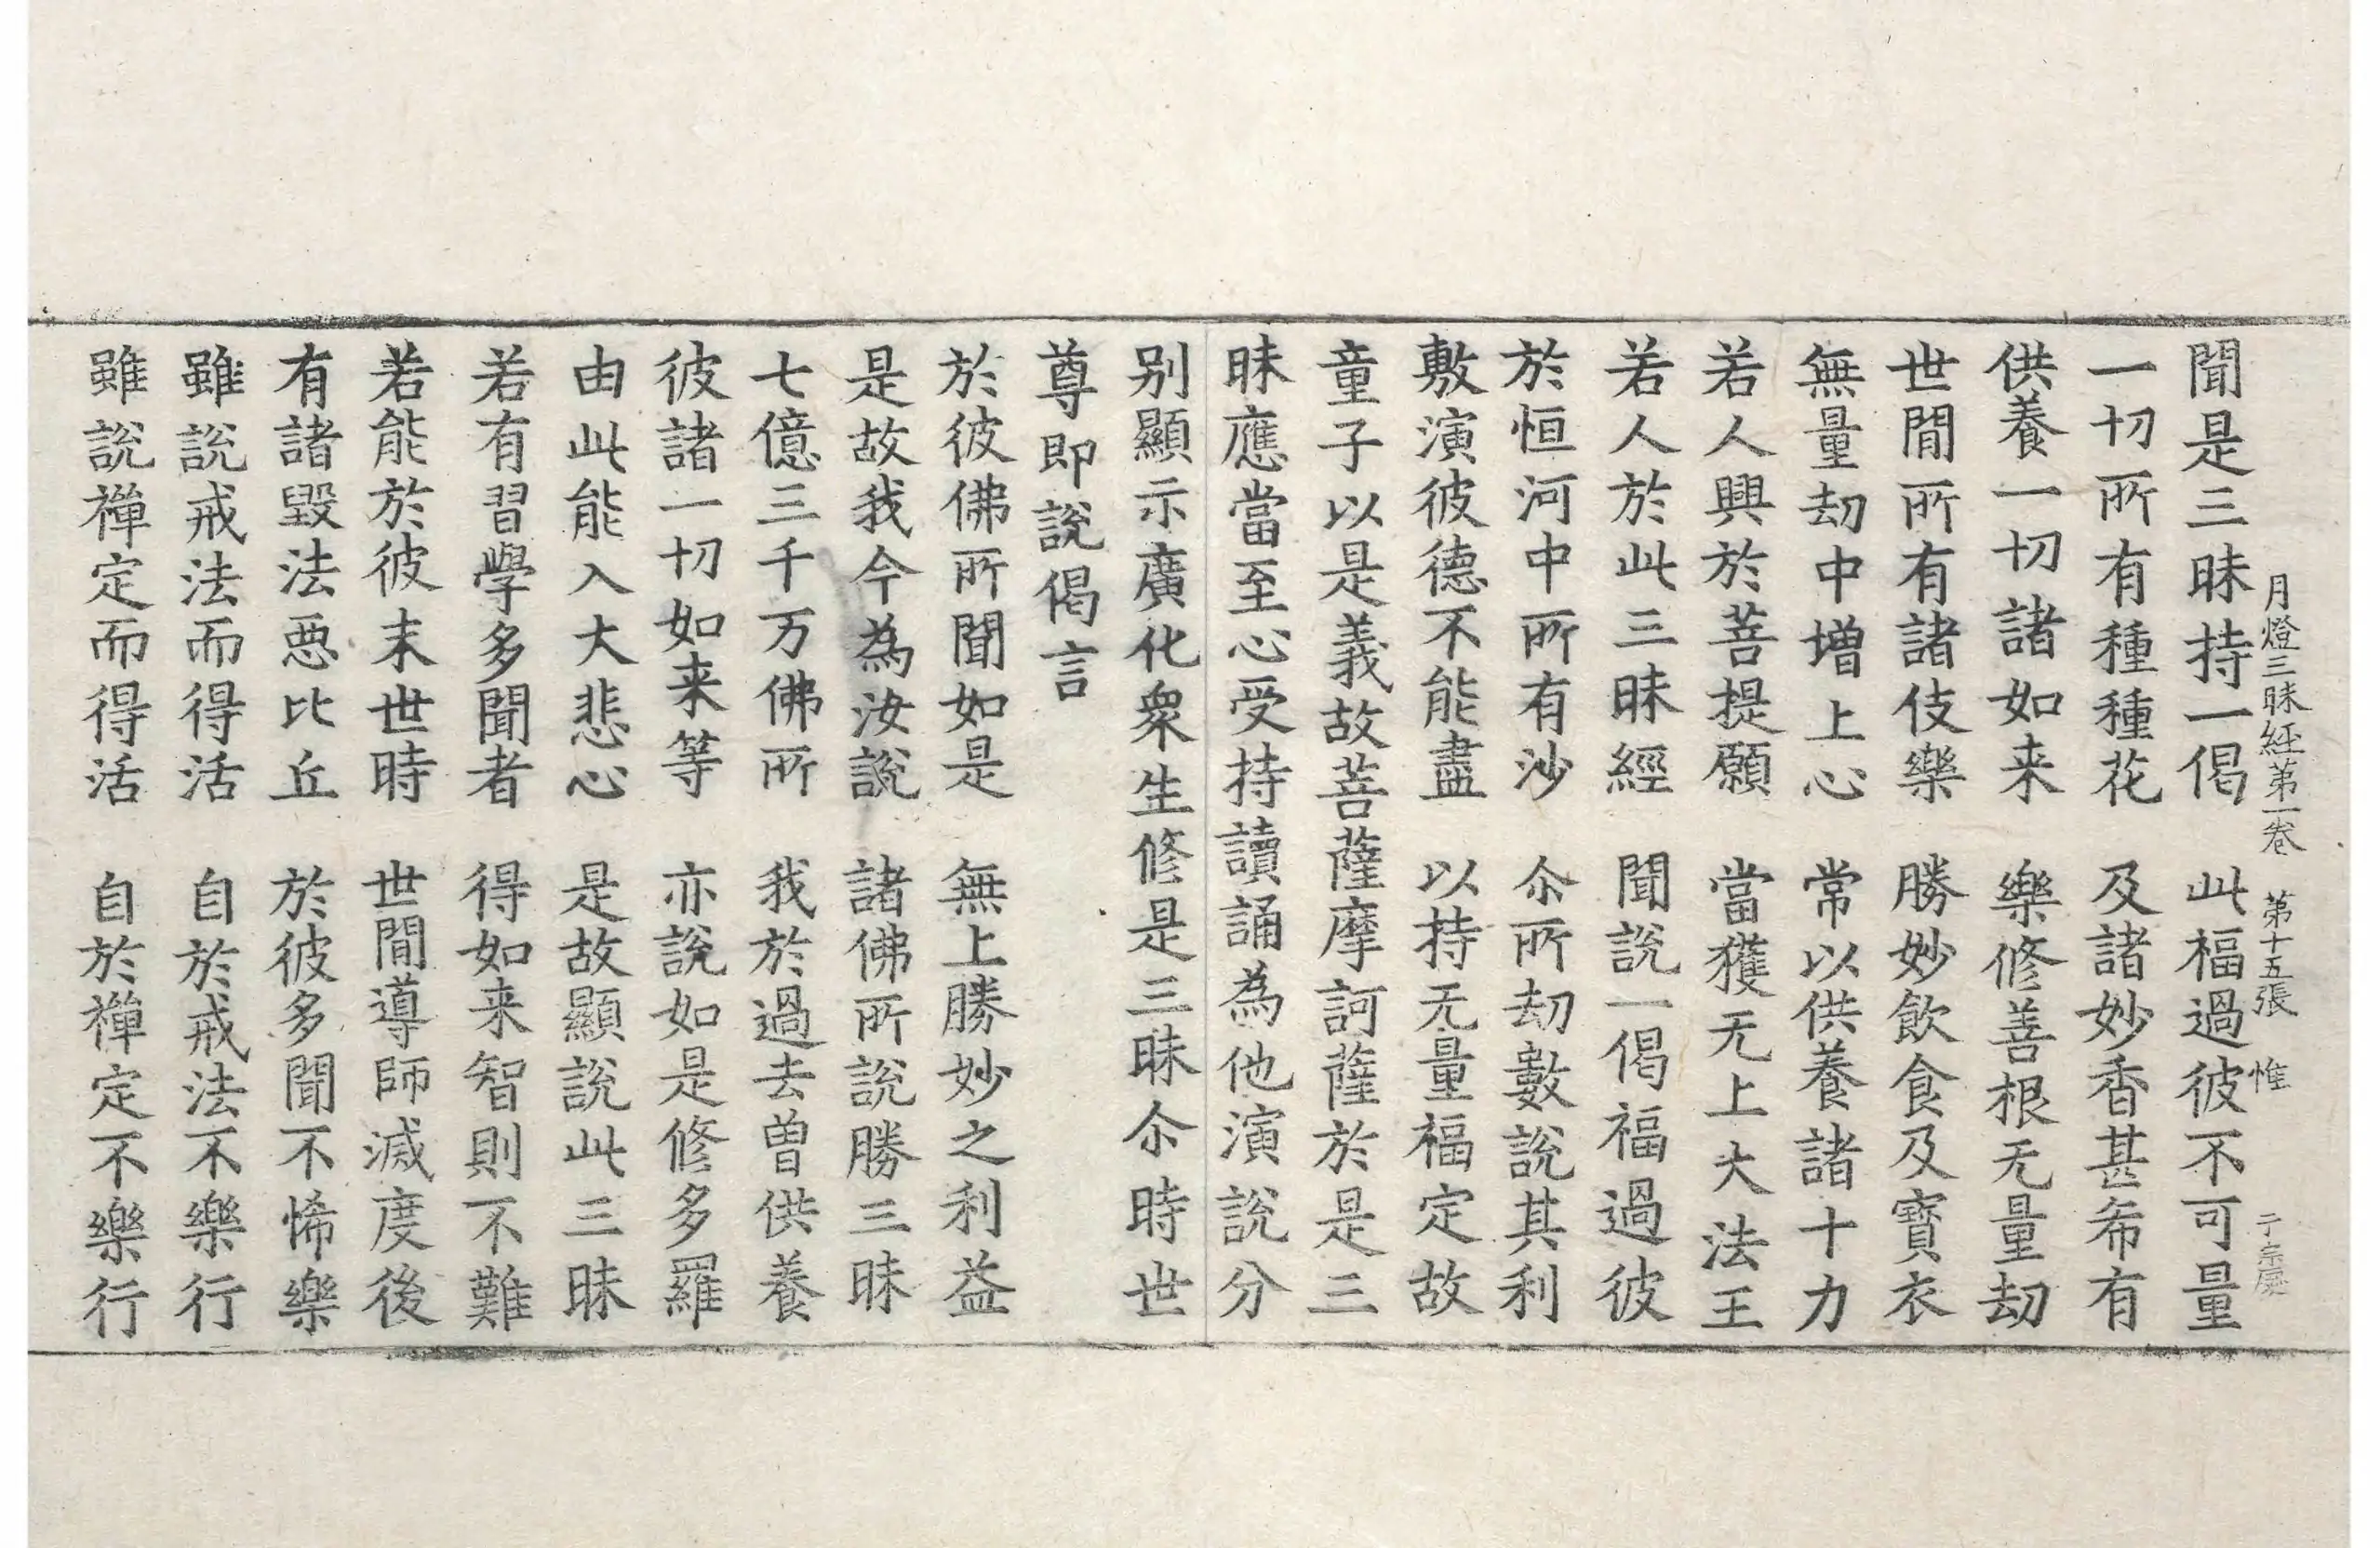 月燈三昧經第一卷 第十五張 惟
聞是三昧持一偈 此福過彼不可量
一切所有種種花 及諸妙香甚希有
供養一切諸如来 樂修善根无量劫
世閒所有諸伎樂 勝妙飲食及寶衣
無量劫中增上心 常以供養諸十力
若人興於菩提願 當獲无上大法王
若人於此三昧經 聞說一偈福過彼
於恒河中所有沙 尒所劫數說其利
敷演彼德不能盡 以持无量福定故
童子以是義故菩薩摩訶薩於是三
昧應當至心受持讀誦為他演說分
别顯示廣化衆生修是三昧尒時世
尊即說偈言
於彼佛所聞如是 無上勝妙之利益
是故我今為汝說 諸佛所說勝三昧
七億三千万佛所 我於過去曽供養
彼諸一切如来等 亦說如是修多羅
由此能入大悲心 是故顯說此三昧
若有習學多聞者 得如来智則不難
若能於彼末世時 世間導師滅度後
有諸毀法惡比丘 於彼多聞不悕樂
雖說戒法而得活 自於戒法不樂行
雖說禪定而得活 自於禪定不樂行